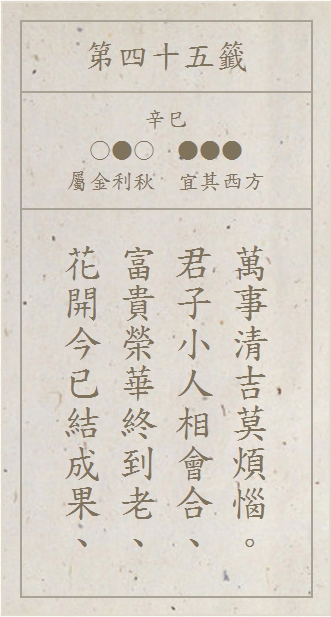 第四十五籤
辛巳
○●○ ●●●
屬金利秋 宜其西方
花開今已結成果、
富貴榮華終到老、
君子小人相會合、
萬事清吉莫煩惱。